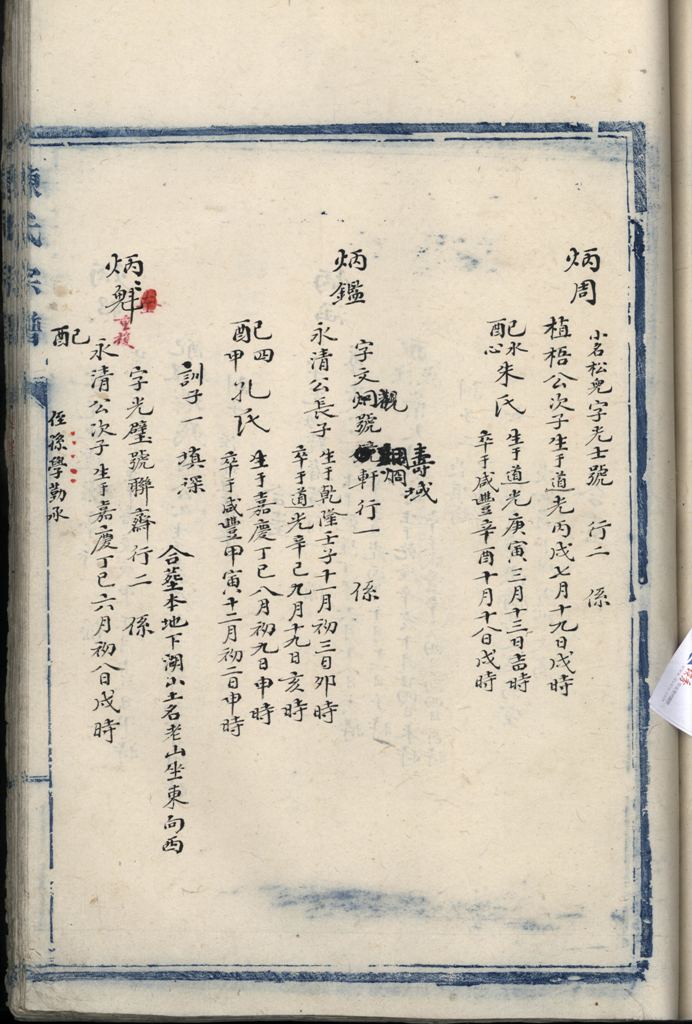 炳周
小名松兒字光士號 行二 係
植梧公次子生于道光丙戌七月十九日戌時
配水心朱氏 生于道光庚寅三月十三日吉時
卒于咸豐辛酉十月十八日戌時
炳鑑
壽域
觀
字文炯號軒行一 係
永清公長子 生于乾隆壬子十一月初三日卯時
卒于道光辛巳九月十九日亥時
配四甲孔氏 生于嘉慶丁巳八月初九日申時
卒于咸豐甲寅十二月初二日申時
訓子一 填深
合塟本地下湖小土名老山坐東向西
炳魁
重複
字光璧號聯齋行二 係
永清公次子 生于嘉慶丁巳六月初八日戌時
配
侄孫學勤承
陳氏宗譜